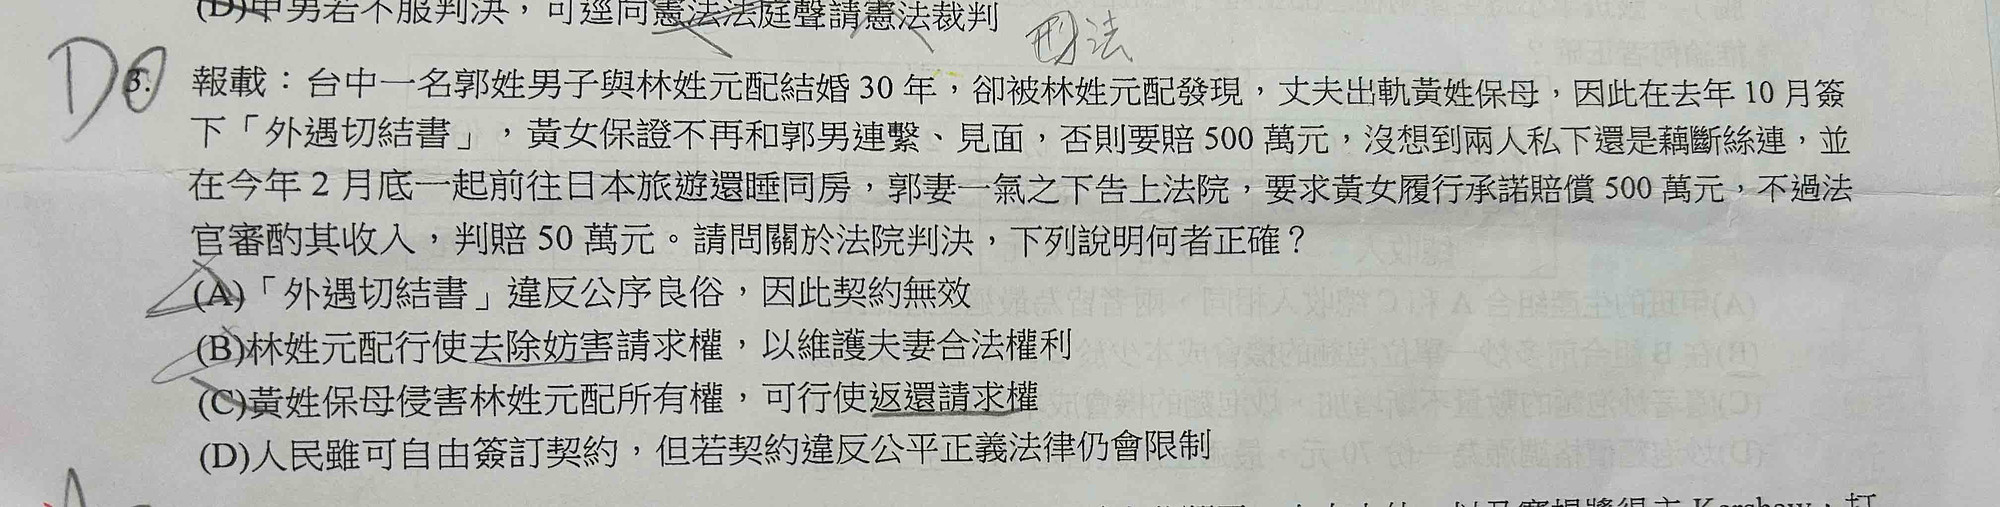 (D)甲男若不服判決，可逕向憲法法庭聲請憲法裁判
D
3. 報載：台中一名郭姓男子與林姓元配結婚 30 年，卻被林姓元配發現，丈夫出軌黃姓保母，因此在去年 10 月簽
下「外遇切結書」，黃女保證不再和郭男連繫、見面，否則要賠 500 萬元，沒想到兩人私下還是藕斷絲連，並
在今年 2 月底一起前往日本旅遊還睡同房，郭妻一氣之下告上法院，要求黃女履行承諾賠償 500 萬元，不過法
官審酌其收入，判賠 50 萬元。請問關於法院判決，下列說明何者正確？
(A)「外遇切結書」違反公序良俗，因此契約無效
(B)林姓元配行使去除妨害請求權，以維護夫妻合法權利
(C)黃姓保母侵害林姓元配所有權，可行使返還請求權
(D)人民雖可自由簽訂契約，但若契約違反公平正義法律仍會限制